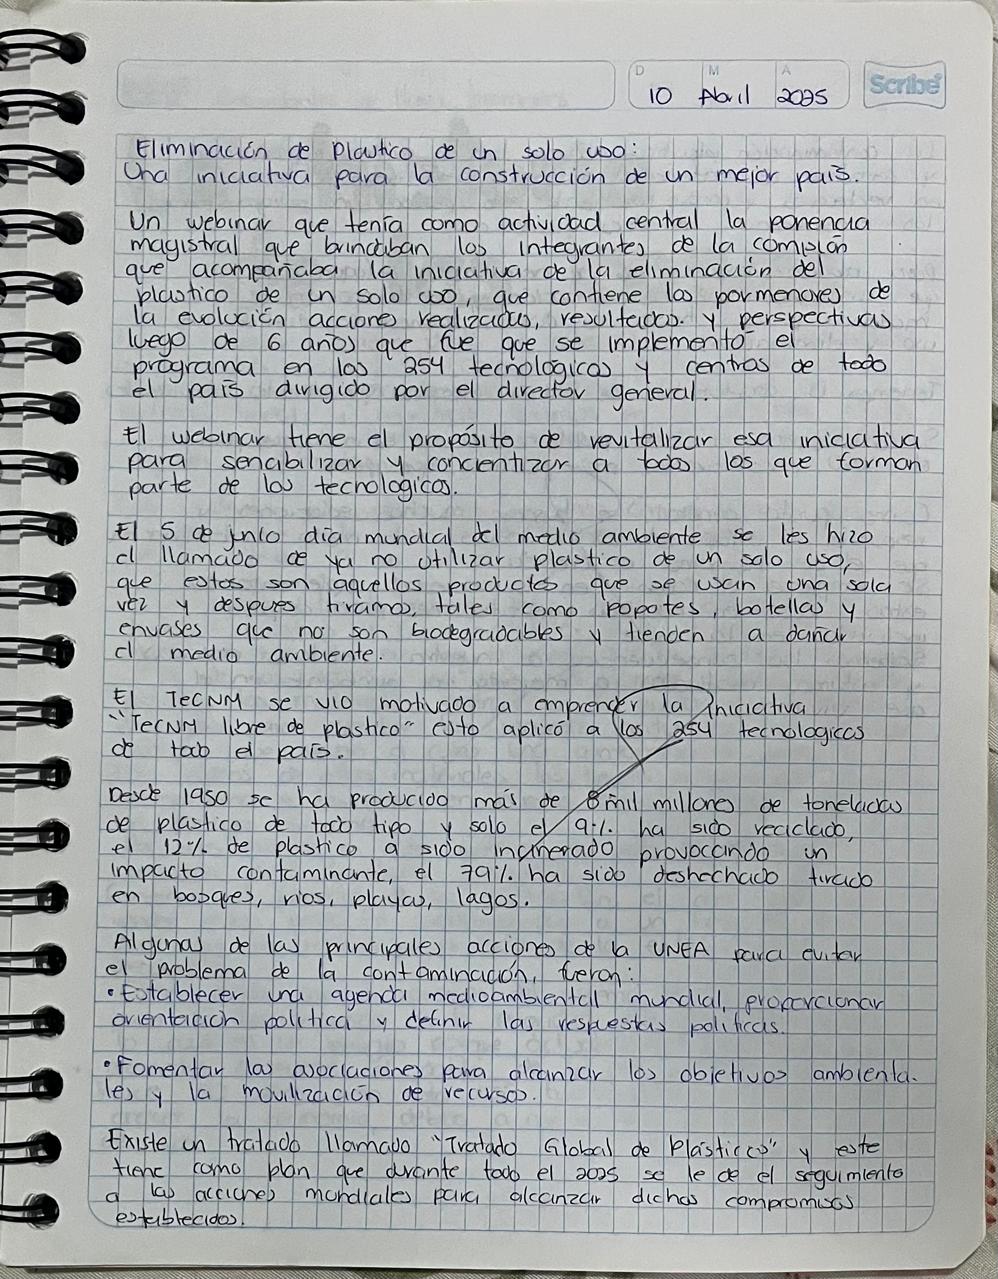 D M A
10 Abril 2025
Scribe
Eliminación de plastico de un solo uso:
Una iniciativa para la construcción de un mejor país.
Un webinar que tenía como actividad central la ponencia
magistral que brindaban los integrantes de la comisión
que acompañaba la iniciativa de la eliminación del
plastico de un solo uso, que contiene los pormenores de
la evolución acciones realizadas, resultados. y perspectivas
luego de 6 años que fue que se implementó el
programa en los 254 tecnologicos y centros de todo
el país dirigido por el director general.
El webinar tiene el propósito de revitalizar esa iniciativa
para sensibilizar y concientizar a todos los que forman
parte de los tecnologicos.
El 5 de junio día mundial del medio ambiente se les hizo
el llamado de ya no utilizar plastico de un solo uso,
que estos son aquellos productos que se usan una sola
vez y despues tiramos, tales como popotes, botellas y
envases que no son biodegradables y tienden a dañar
el medio ambiente.
El TecNM se vio motivado a emprender la iniciativa
"TecNM libre de plastico" esto aplicó a los 254 tecnologicos
de todo el país.
Desde 1950 se ha producido más de 8 mil millones de toneladas
de plastico de todo tipo y solo el 9% ha sido reciclado,
el 12% de plastico a sido incinerado provocando un
impacto contaminante, el 79% ha sido deshechado tirado
en bosques, rios, playas, lagos.
Algunas de las principales acciones de la UNEA para evitar
el problema de la contaminación, fueron:
• Establecer una agenda medioambiental mundial, proporcionar
orientación politica y definir las respuestas politicas.
• Fomentar las asociaciones para alcanzar los objetivos ambienta-
les y la movilización de recursos.
Existe un tratado llamado "Tratado Global de Plásticos" y este
tiene como plan que durante todo el 2025 se le de el seguimiento
a las acciones mundiales para alcanzar dichos compromisos
establecidos.